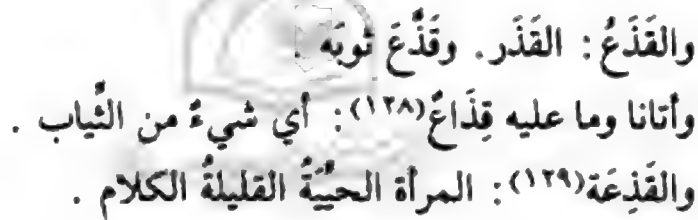 والقَذَعُ : القَذَر . وقَذَّعَ ثوبَه .
وأتانا وما عليه قِذَاعٌ(١٢٨) : أي شيءٌ من الثِّياب .
والقَذِعَة(١٢٩) : المرأة الحيِّيَةُ القليلةُ الكلام .